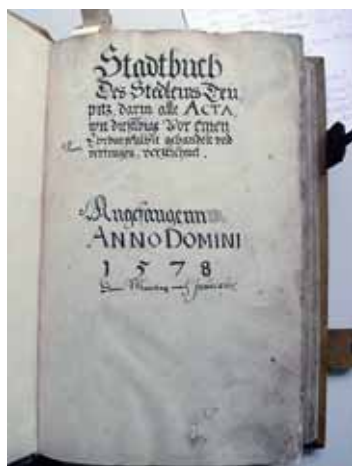 Stadtbuch
Des Stedleins Teu
pitz, darin alle ACTA,
wie dieselbige Vor einen
gehandelt und
vertragen, verzeichnet.
Angefangenn
ANNO DOMINI
1578